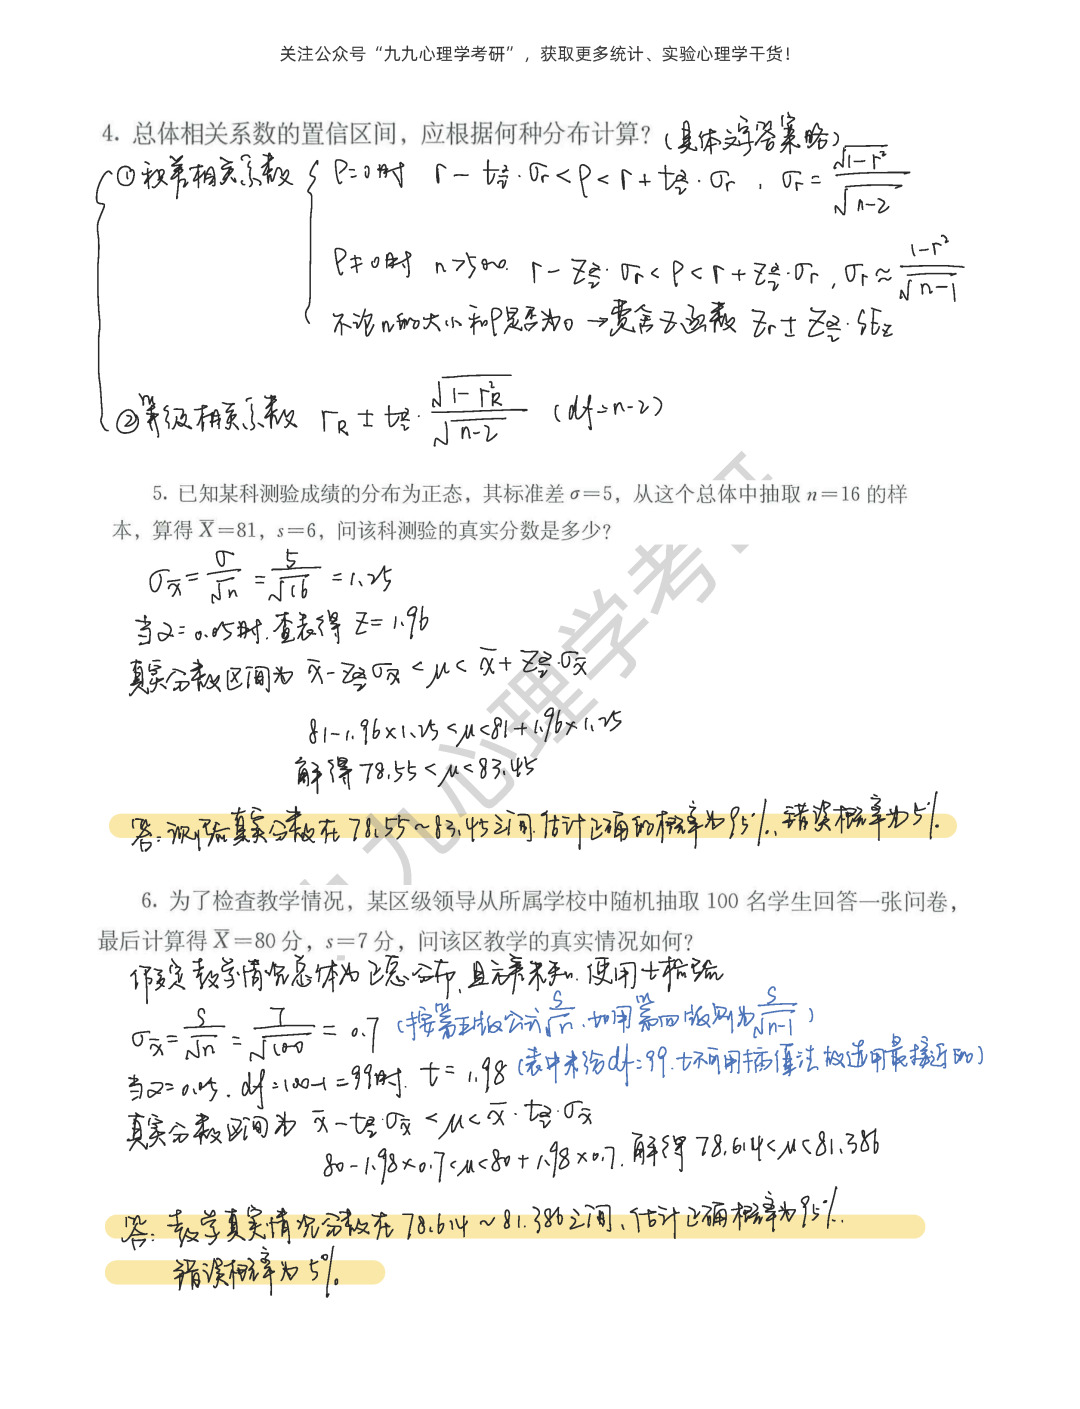 关注公众号“九九心理学考研”，获取更多统计、实验心理学干货！
4. 总体相关系数的置信区间，应根据何种分布计算？（具体文字答案略）
①积差相关系数 ρ=0时 r-t_{α/2}·σ_r<ρ<r+t_{α/2}·σ_r，σ_r=√(1-r²)/√(n-2)
ρ≠0时 n>500. r-Z_{α/2}·σ_r<ρ<r+Z_{α/2}·σ_r，σ_r≈(1-r²)/√(n-1)
不论n的大小和ρ是否为0→费舍Z函数 Z_r±Z_{α/2}·SE_Z
②等级相关系数 r_R±t_{α/2}·√(1-r_R²)/√(n-2) （df=n-2）
5. 已知某科测验成绩的分布为正态，其标准差 σ=5，从这个总体中抽取 n=16 的样
本，算得 X̄=81，s=6，问该科测验的真实分数是多少？
σ_x̄=σ/√n=5/√16=1.25
当α=0.05时.查表得 Z=1.96
真实分数区间为 x̄-Z_{α/2}σ_x̄<μ<x̄+Z_{α/2}·σ_x̄
81-1.96×1.25<μ<81+1.96×1.25
解得78.55<μ<83.45
答：真实分数在78.55~83.45之间.估计正确的概率为95%.错误概率为5%.
九心理学考
6. 为了检查教学情况，某区级领导从所属学校中随机抽取 100 名学生回答一张问卷，
最后计算得 X̄=80 分，s=7 分，问该区教学的真实情况如何？
假定教学情况总体为正态分布，且方差未知.使用t检验
σ_x̄=s/√n=7/√100=0.7 （按第五版公式s/√n.如用第四版则为s/√(n-1)）
当α=0.05. df=100-1=99时. t=1.98（表中未给df=99.t不可用插值法故选用最接近的）
真实分数区间为 x̄-t_{α/2}·σ_x̄<μ<x̄·t_{α/2}·σ_x̄
80-1.98×0.7<μ<80+1.98×0.7.解得78.614<μ<81.386
答：教学真实情况分数在78.614~81.386之间、估计正确概率为95%.
错误概率为5%.